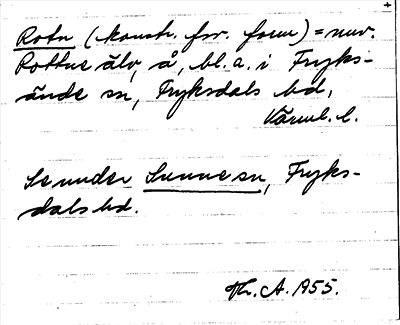 Rotn (konstr. fsv. form) = nuv.
Rottne älv, å, bl. a. i Fryks-
ände sn, Fryksdals hd,
Värml. l.
Se under Sunne sn, Fryks-
dals hd.
Th. A. 1955.